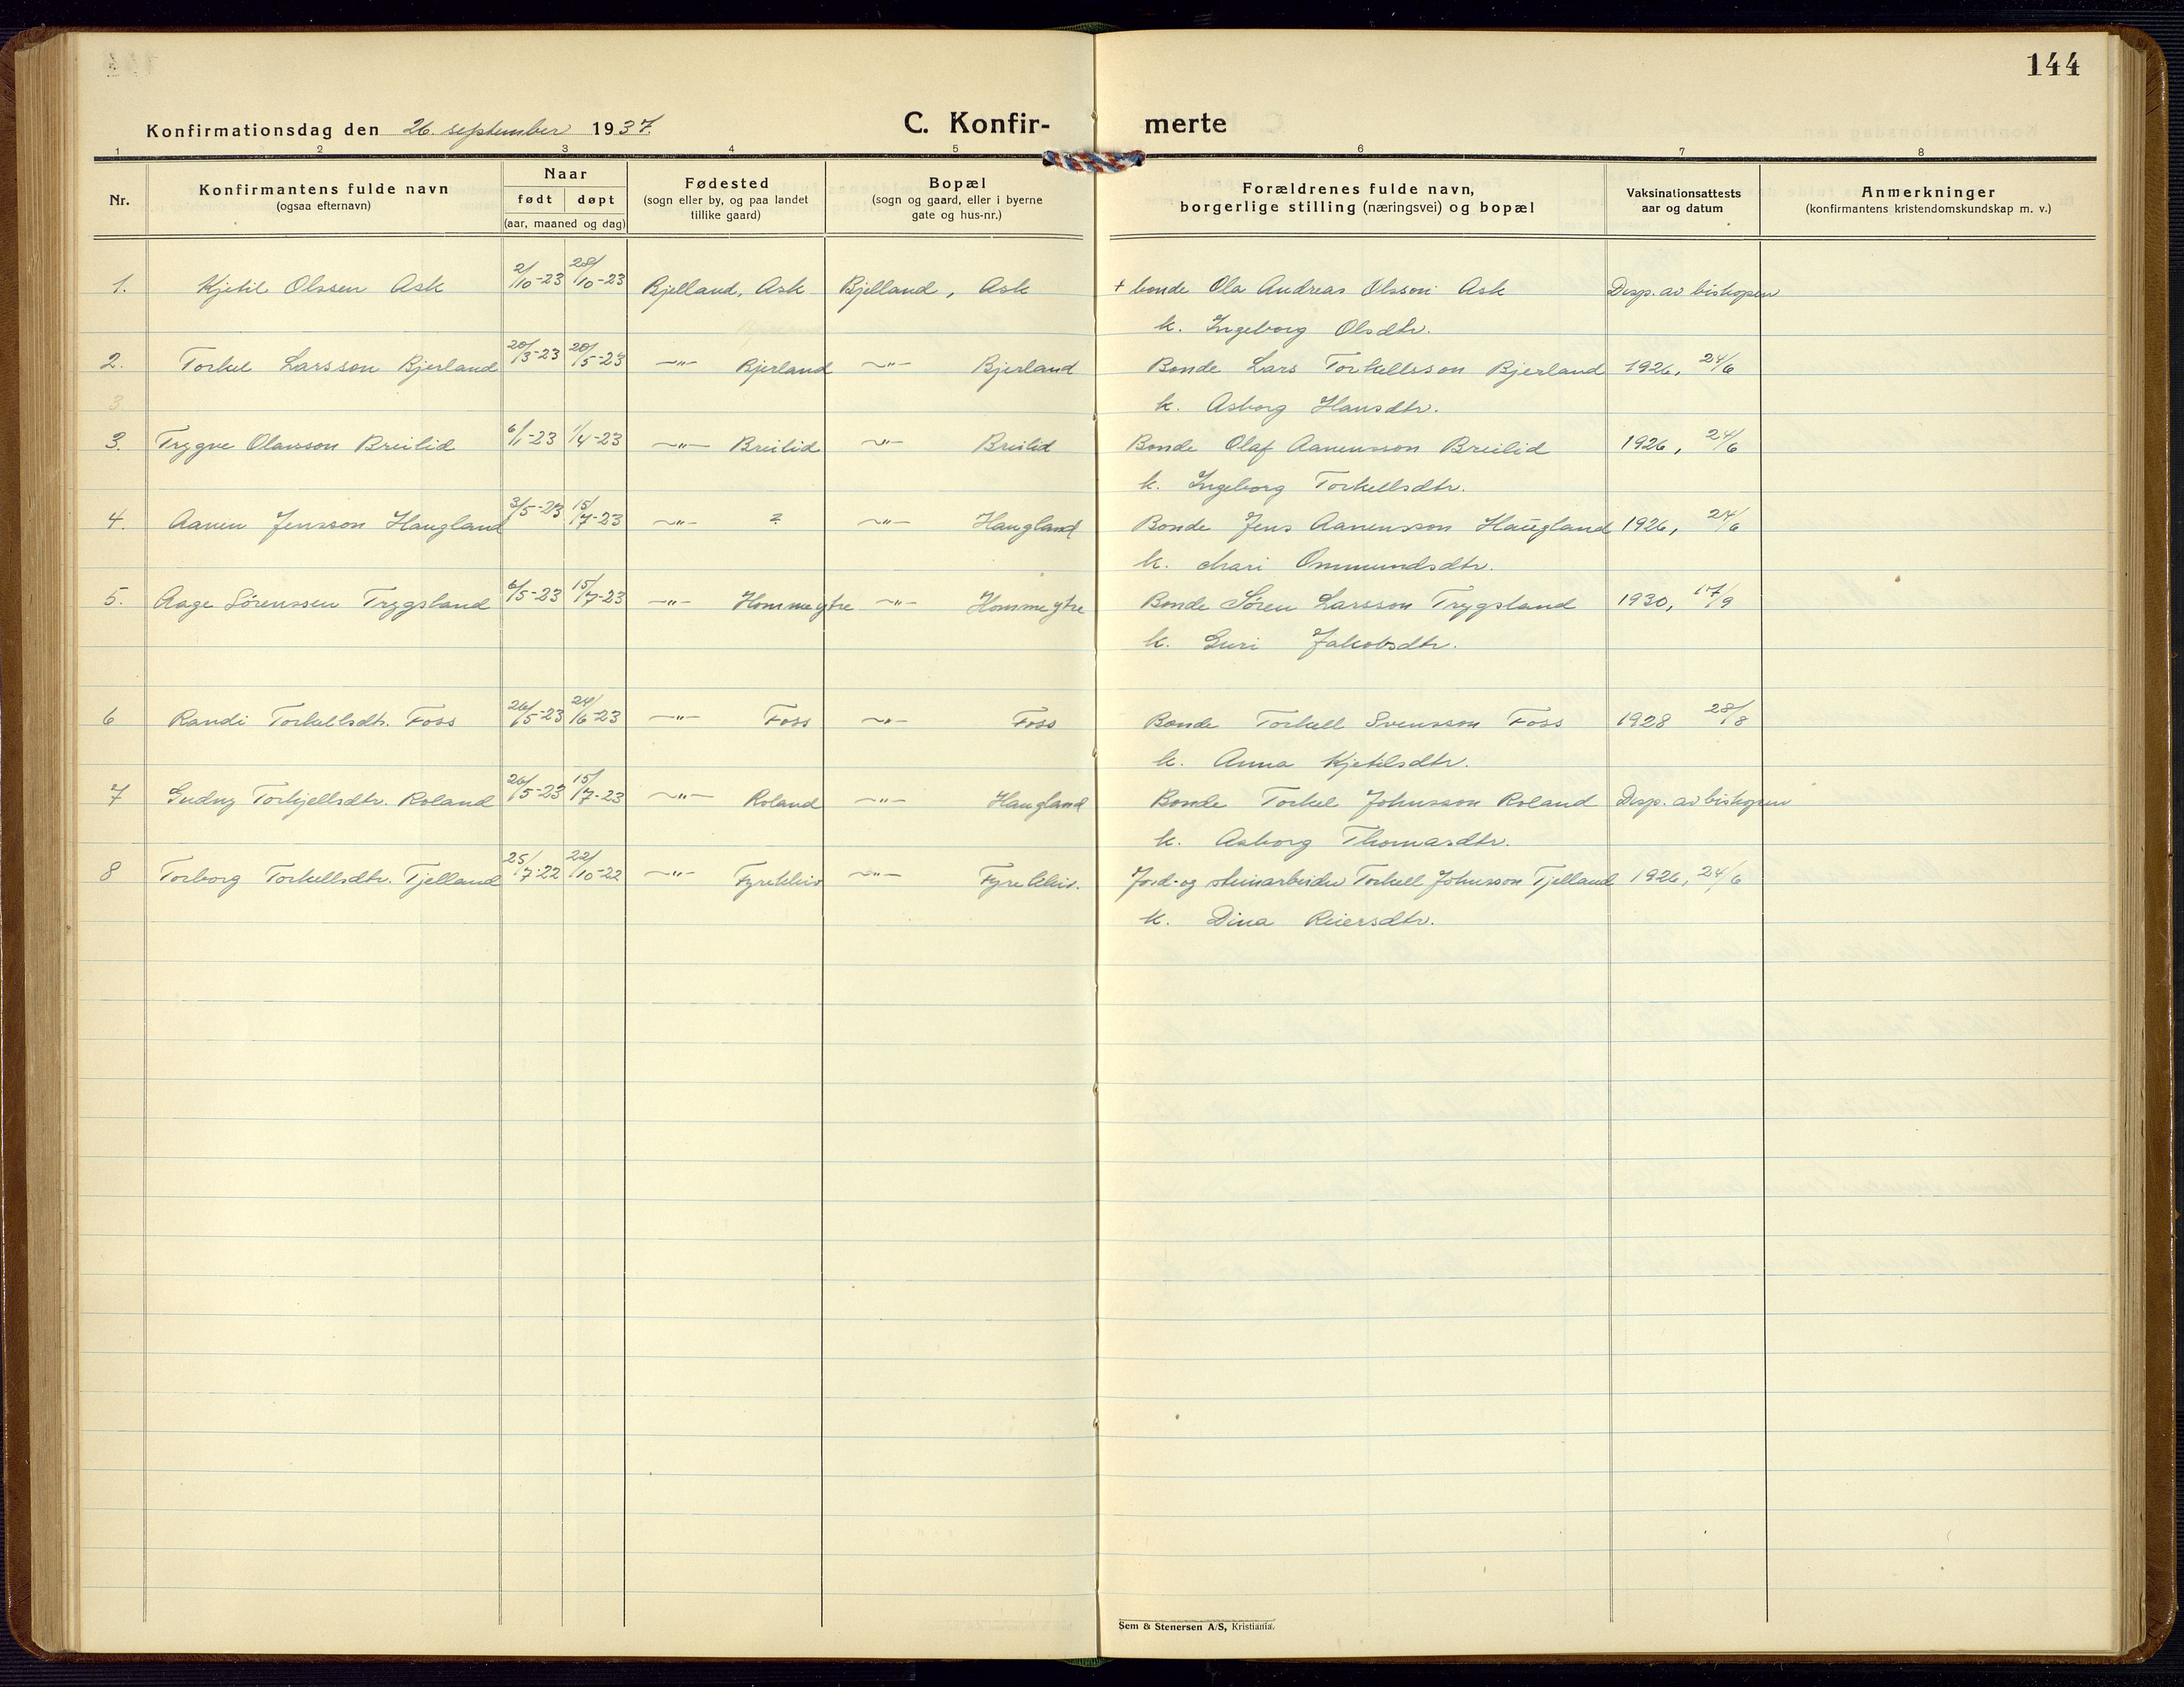 144
Konfirmationsdag den 26. september 1937.
C. Konfir- merte
1 2 3 4 5 6 7 8
Nr.
Konfirmantens fulde navn
(ogsaa efternavn)
Naar
født døpt
(aar, maaned og dag)
Fødested
(sogn eller by, og paa landet
tillike gaard)
Bopæl
(sogn og gaard, eller i byerne
gate og hus-nr.)
Forældrenes fulde navn,
borgerlige stilling (næringsvei) og bopæl
Vaksinationsattests
aar og datum
Anmerkninger
(konfirmantens kristendomskundskap m. v.)
1. Kjetil Olssen Ask 2/10-23 28/10-23 Bjelland, Ask Bjelland, Ask + bonde Ola Andreas Olsson Ask Disp. av biskopen
k. Ingeborg Olsdtr.
2. Torkel Larsson Bjerland 20/3-23 20/5-23 -"- Bjerland -"- Bjerland Bonde Lars Torkellsson Bjerland 1926, 24/6
3 k. Asborg Hansdtr.
3. Trygve Olavsson Breilid 6/1-23 1/4-23 -"- Breilid -"- Breilid Bonde Olaf Aanensson Breilid 1926, 24/6
k. Ingeborg Torkellsdtr.
4. Aanen Jensson Haugland 3/5-23 15/7-23 -"- ? -"- Haugland Bonde Jens Aanensson Haugland 1926, 24/6
k. Mari Ommundsdtr.
5. Aage Sørenssen Trygsland 6/5-23 15/7-23 -"- Homme ytre -"- Homme ytre Bonde Søren Larsson Trygsland 1930, 17/9
k. Guri Jakobsdtr.
6 Randi Torkellsdtr. Foss 26/5-23 24/6-23 -"- Foss -"- Foss Bonde Torkell Svensson Foss 1928 28/8
k. Anna Kjetilsdtr.
7 Gudny Torkjellsdtr. Roland 26/5-23 15/7-23 -"- Roland -"- Haugland Bonde Torkel Johnsson Roland Disp. av biskopen
k. Asborg Thomasdtr.
8 Torborg Torkellsdtr. Tjelland 25/7-22 22/10-22 -"- Fyrekleiv -"- Fyrekleiv. Jord- og steinarbeider Torkell Johnsson Tjelland 1926, 24/6
k. Dina Reiersdtr.
Sem & Stenersen A/S, Kristiania.